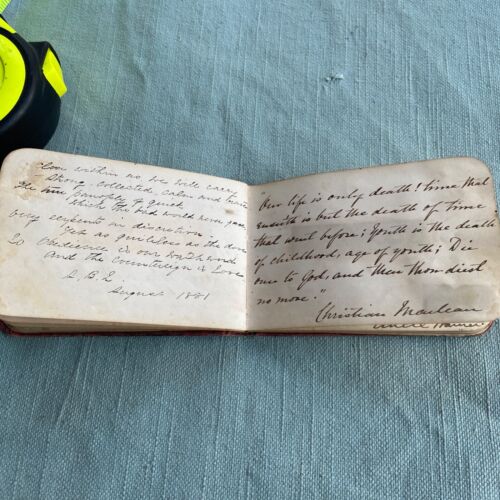 Love within us we will carry
Strong, collected, calm and brave
The true panoply of quick
Which the bad would never have
very serpents in discretion
Yet as guileless as the dove
Lo Obedience is our watchword
And the Countersign is Love
August 1881
"Our life is only death! time that
ensueth is but the death of time
that went before; Youth is the death
of childhood, age of youth; Die
once to God, and then thou diest
no more."
Christian Maclean